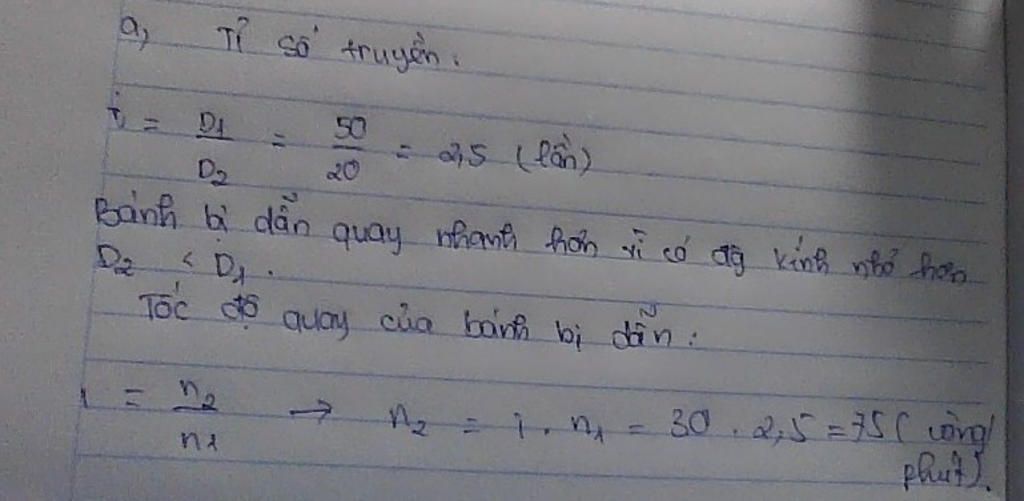 a, Tỉ số truyền:
i = D1/D2 = 50/20 = 2,5 (lần)
Bánh bị dẫn quay nhanh hơn vì có đg kính nhỏ hơn
D2 < D1.
Tốc độ quay của bánh bị dẫn:
i = n2/n1 → n2 = i . n1 = 30 . 2,5 = 75 ( vòng/
phút).